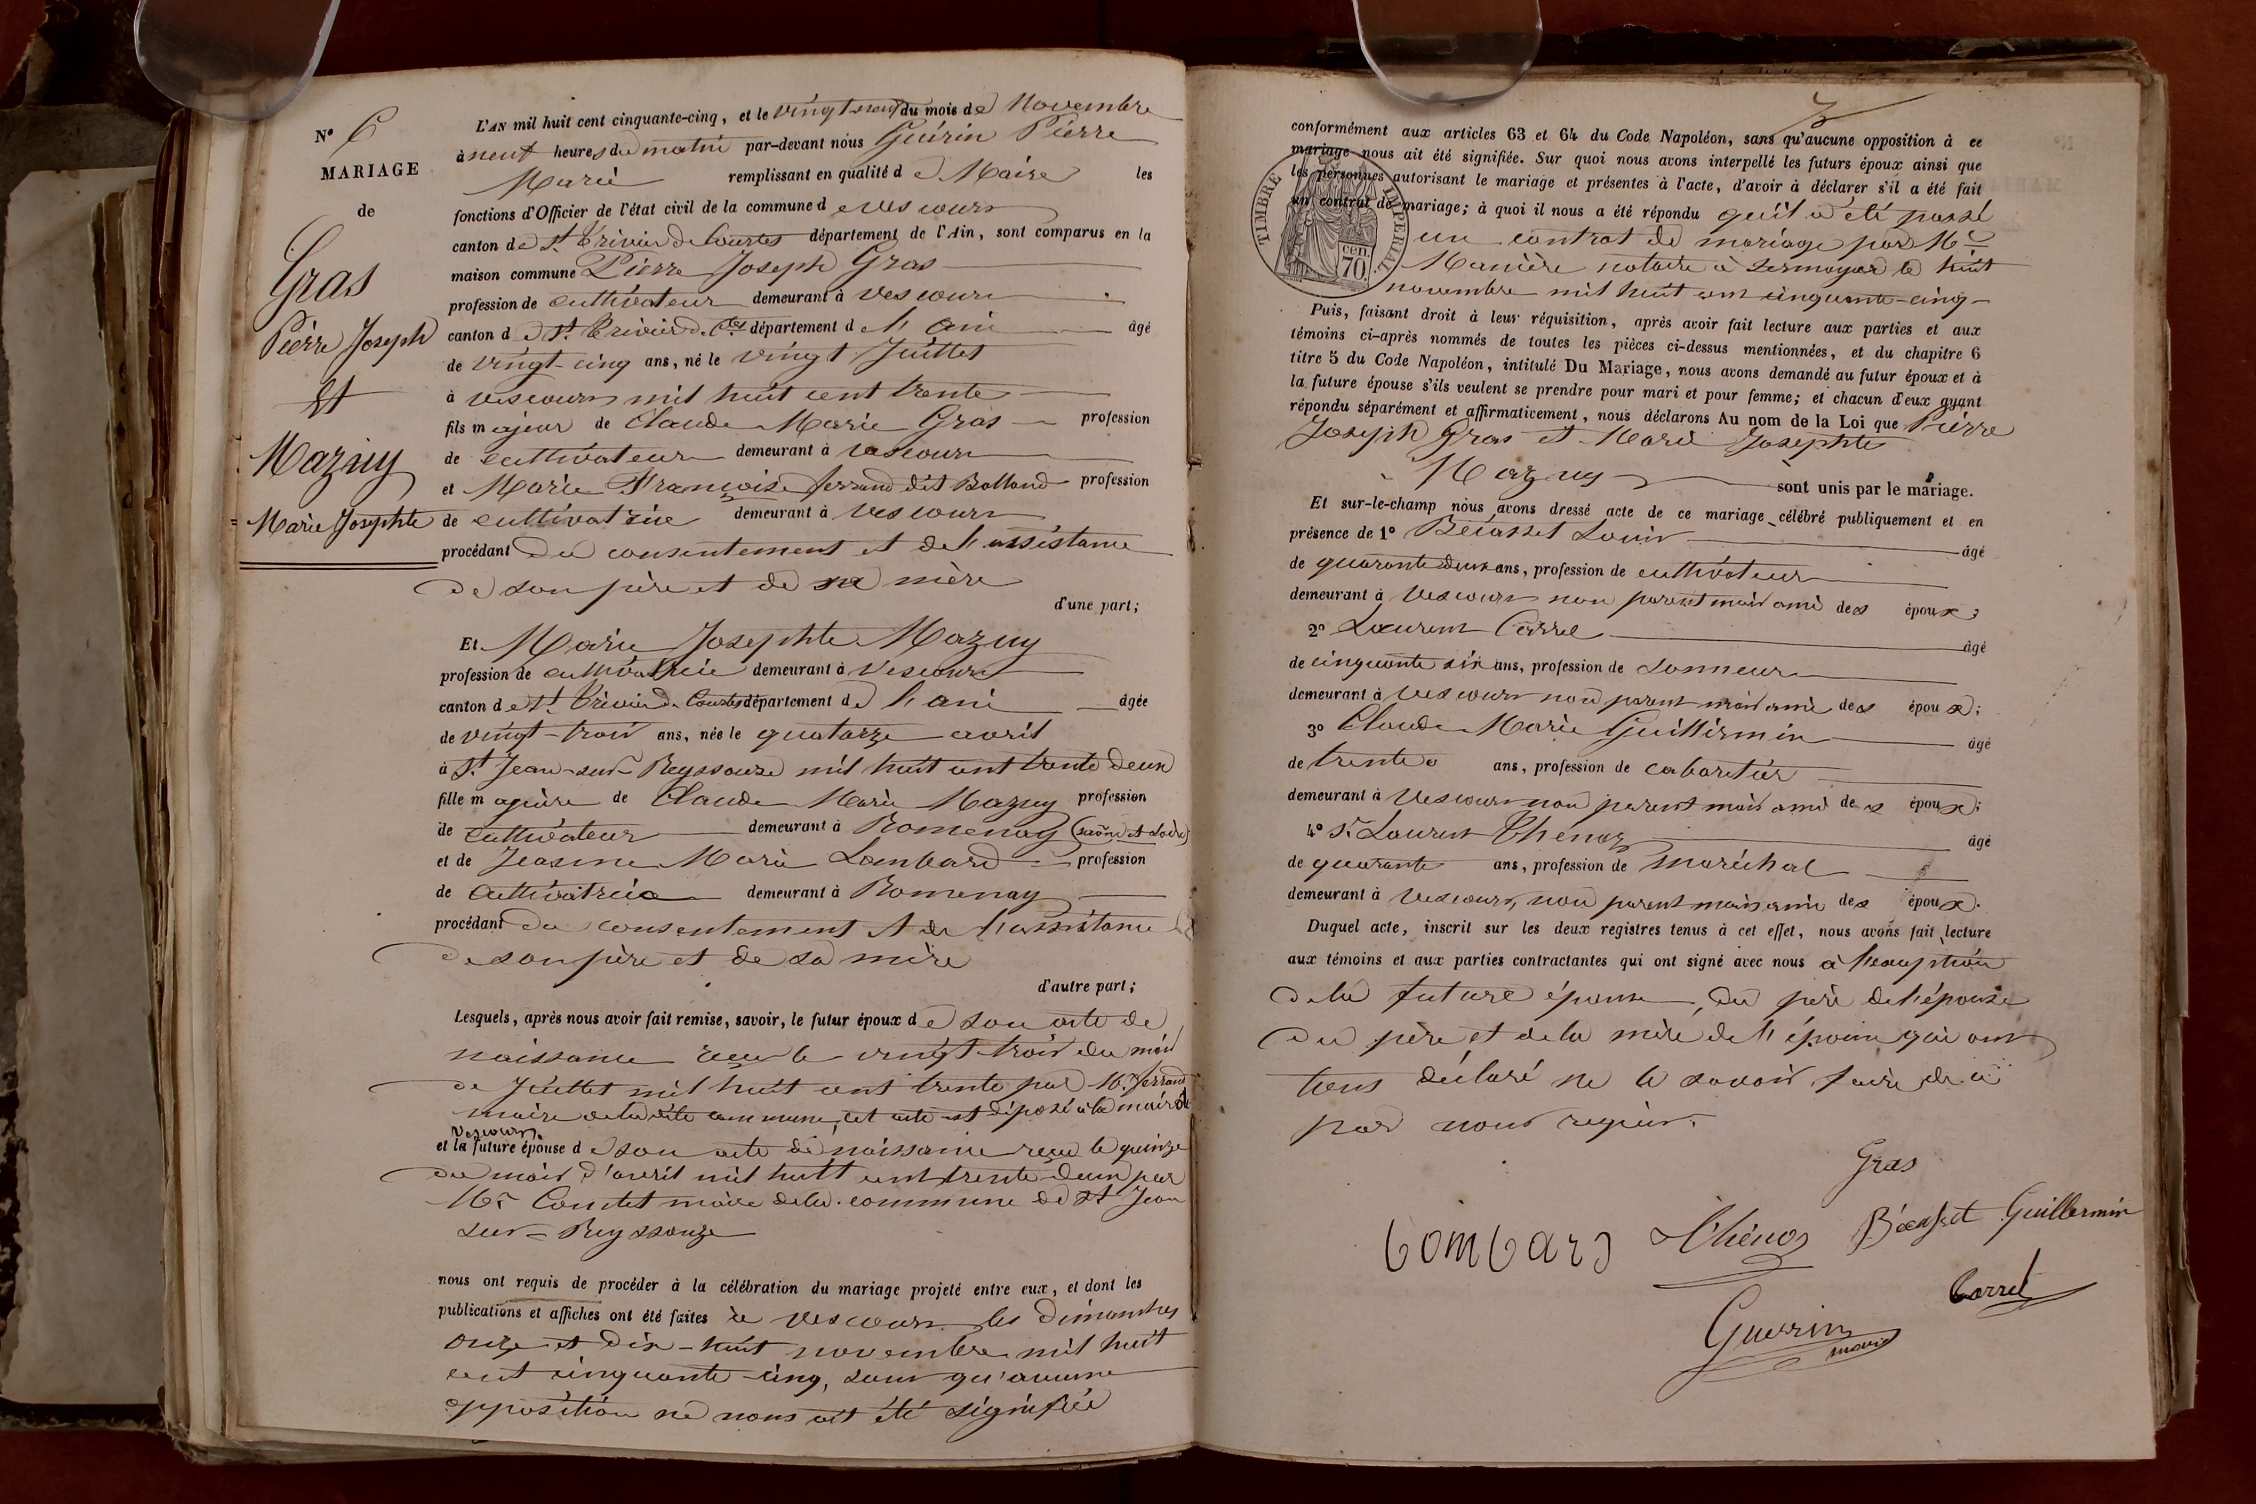 N° 6
MARIAGE
de
Gras
Pierre Joseph
Et
Mazuy
Marie Josephte
L'AN mil huit cent cinquante-cinq, et le vingt neuf du mois de Novembre
à neuf heures du matin par-devant nous Guérin Pierre
Marie remplissant en qualité de Maire les
fonctions d'Officier de l'état civil de la commune de Vescours
canton de St Trivier de Courtes département de l'Ain, sont comparus en la
maison commune Pierre Joseph Gras
profession de cultivateur demeurant à Vescours
canton de St. Trivier de Ctes département de l'ain âgé
de vingt-cinq ans, né le vingt Juillet
à Vescours mil huit cent trente
fils majeur de Claude Marie Gras profession
de cultivateur demeurant à Vescours
et Marie Françoise ferrand dit Bolland profession
de cultivatrice demeurant à Vescours
procédant du consentement et de l'assistance
de son père et de sa mère
d'une part;
Et Marie Josephte Mazuy
profession de cultivatrice demeurant à Vescours
canton de St. Trivier de Courtes département de l'ain âgée
de vingt-trois ans, née le quatorze avril
à St Jean-sur-Reyssouze mil huit cent trente deux
fille majeure de Claude Marie Mazuy profession
de cultivateur demeurant à Romenay (saône et Loire)
et de Jeanne Marie Lombard profession
de cultivatrice demeurant à Romenay
procédant du consentement et de l'assistance
de son père et de sa mère
d'autre part;
Lesquels, après nous avoir fait remise, savoir, le futur époux de son acte de
naissance reçu le vingt-trois du mois
de Juillet mil huit cent trente par Mr. ferrand
maire de la dite commune, cet acte est déposé à la mairie de
Vescours.
et la future épouse de son acte de naissance reçu le quinze
du mois d'avril mil huit cent trente-deux par
Mr Comtet maire de la commune de St Jean
sur-Reyssouze
nous ont requis de procéder à la célébration du mariage projeté entre eux, et dont les
publications et affiches ont été faites à Vescours les Dimanches
onze et dix-huit novembre mil huit
cent cinquante-cinq, sans qu'aucune
opposition ne nous ait été signifiée
conformément aux articles 63 et 64 du Code Napoléon, sans qu'aucune opposition à ce
mariage nous ait été signifiée. Sur quoi nous avons interpellé les futurs époux ainsi que
les personnes autorisant le mariage et présentes à l'acte, d'avoir à déclarer s'il a été fait
un contrat de mariage; à quoi il nous a été répondu qu'il a été passé
un contrat de mariage par Me
Manière notaire à Sermoyer le huit
novembre mil huit cent cinquante-cinq
TIMBRE IMPÉRIAL
cen. 70.
Puis, faisant droit à leur réquisition, après avoir fait lecture aux parties et aux
témoins ci-après nommés de toutes les pièces ci-dessus mentionnées, et du chapitre 6
titre 5 du Code Napoléon, intitulé Du Mariage, nous avons demandé au futur époux et à
la future épouse s'ils veulent se prendre pour mari et pour femme; et chacun d'eux ayant
répondu séparément et affirmativement, nous déclarons Au nom de la Loi que Pierre
Joseph Gras et Marie Josephte
Mazuy sont unis par le mariage.
Et sur-le-champ nous avons dressé acte de ce mariage célébré publiquement et en
présence de 1° Bécasset Louis âgé
de quarante deux ans, profession de cultivateur
demeurant à Vescours non parent mais ami des époux;
2° Laurent Carrel âgé
de cinquante six ans, profession de sonneur
demeurant à Vescours non parent mais ami des époux;
3° Claude Marie Guillermin âgé
de trente ans, profession de cabaretier
demeurant à Vescours non parent mais ami des époux;
4° Sr Laurent Thenoz âgé
de quarante ans, profession de maréchal
demeurant à Vescours, non parent mais ami des époux.
Duquel acte, inscrit sur les deux registres tenus à cet effet, nous avons fait lecture
aux témoins et aux parties contractantes qui ont signé avec nous à l'exception
de la future épouse, du père de l'épouse
du père et de la mère de l'époux qui ont
tous déclaré ne le savoir faire de ce
par nous requis.
Gras
Lombard Thénoz Bécasset Guillermin
Carrel
Guerrin
maire